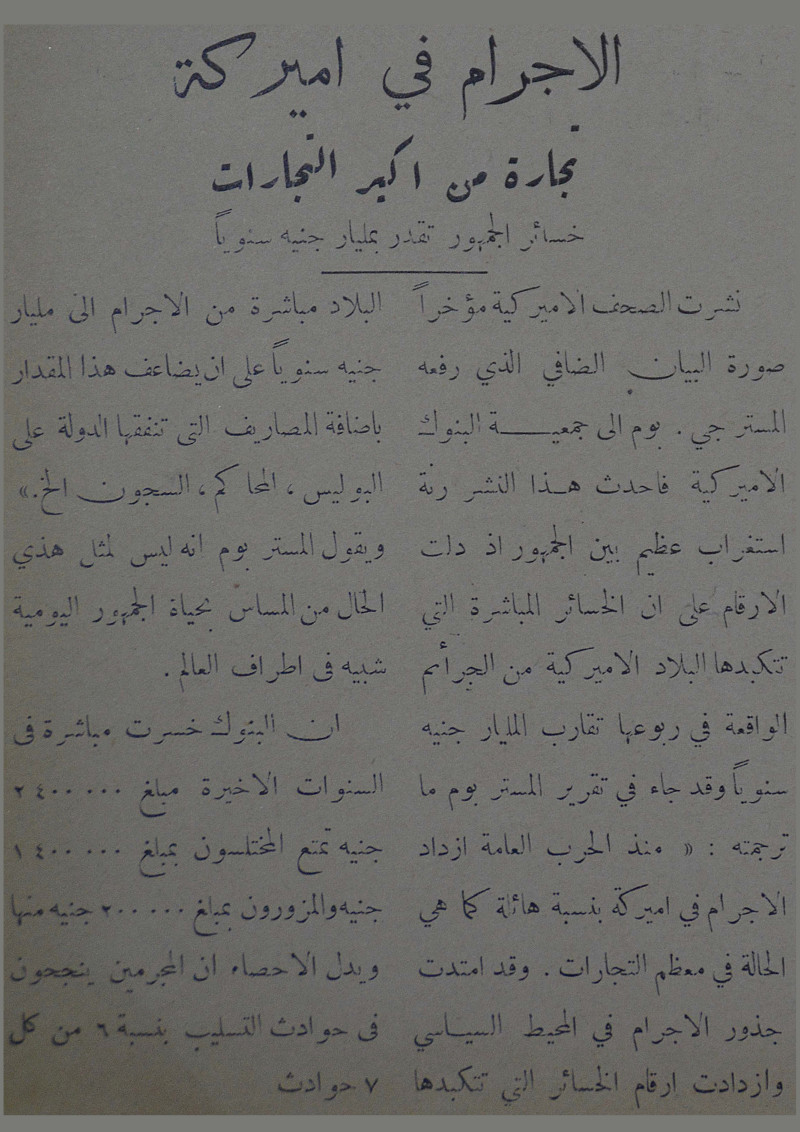 الاجرام في اميركة
تجارة من اكبر التجارات
خسائر الجمهور تقدر بمليار جنيه سنوياً
نشرت الصحف الاميركية مؤخراً
صورة البيان الضافي الذي رفعه
المستر جي . بوم الى جمعيـــة البنوك
الاميركية فاحدث هـذا النشر رنة
استغراب عظيم بين الجمهور اذ دلت
الارقام على ان الخسائر المباشرة التي
تتكبدها البلاد الاميركية من الجرأئم
الواقعة في ربوعها تقارب المليار جنيه
سنوياً وقد جاء في تقرير المستر بوم ما
ترجمته : « منذ الحرب العامة ازداد
الاجرام في اميركة بنسبة هائلة كما هي
الحالة في معظم التجارات . وقد امتدت
جذور الاجرام في المحيط السياسي
وازدادت ارقام الخسائر التي تتكبدها
البلاد مباشرة من الاجرام الى مليار
جنيه سنوياً على ان يضاعف هذا المقدار
باضافة المصاريف التى تنفقها الدولة على
البوليس ، المحاكم ، السجون الخ.»
ويقول المستر بوم انه ليس لمثل هذي
الحال من المساس بحياة الجمهور اليومية
شبيه فى اطراف العالم .
ان البنوك خسرت مباشرة فى
السنوات الاخيرة مبلغ ٢٤٠٠٠٠٠
جنيه تمتع المختلسون بمبلغ ١٤٠٠٠٠٠
جنيه والمزورون بمبلغ ٢٠٠٠٠٠ جنيه منها
ويدل الاحصاء ان المجرمين ينجحون
فى حوادث التسليب بنسبة ٦ من كل
٧ حوادث